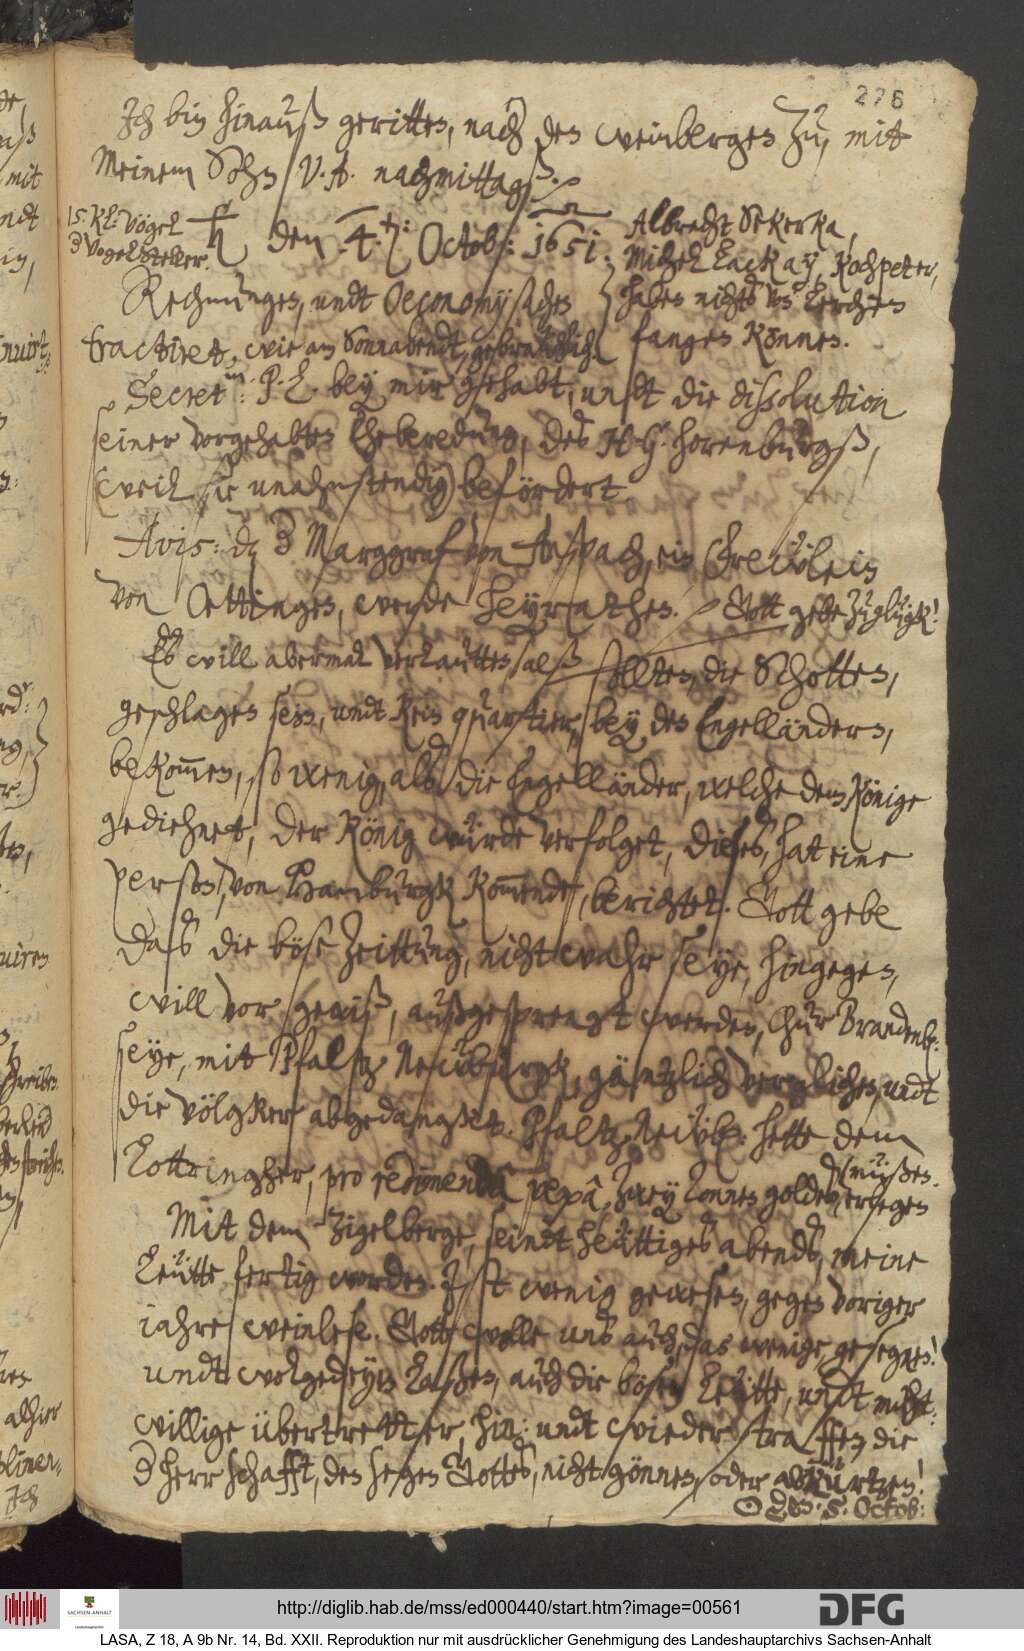 276
Ich bin hinauß geritten, nach den weinbergen zu, mit
Meinem Sohn V. A. nachmittags.
15. Kl: Vögel
d Vogelsteller.
♄ den 4.ten: Octob: 1651.
Albrecht Sekerka,
Michel Lackay, Kochpeter,
haben nichts von Lerchen
fangen können.
Rechnungen, undt Oeconomysachen
tractiret, wie am Sonnabendt, gebraüchlich.
Secret: P. L. bey mir gehabt, undt die dissolution
seiner vorgehabten Eheberedung, des H. G. Horenburgß,
(weil sie unahnstendig) befördert.
Avis: dz d Marggraf von Anspach, ein Freülein
von Oettingen, werde heyrathen. Gott gebe zu glügk!
Es will abermal verlautten, alß sollten, die Schotten,
geschlagen sein, undt kein quartier, bey den Engelländern,
bekommen, so wenig, als die Engelländer, welche dem Könige
gedienet, der König würde verfolget, dieses, hat eine
person, von Hamburgk kommende, berichtet. Gott gebe
daß die böse Zeittung, nicht wahr seye, hingegen,
will vor gewiß, außgesprengt werden, Chur Brandenb:
seye, mit Pfaltz Neüburgk, gäntzlich verglichen, undt
die völgker abgedangkt. Pfaltz Neüb: hette dem
Lottringher, pro redimenda vexâ, zwey Tonnen goldes, erlegen
müßen.
Mit dem Zigelberge, seindt heüttiges abends, meine
Leütte fertig worden. Ist wenig gewesen, gegen voriger
jahre weinlese. Gott wolle uns auch, das wenige, gesegnen!
undt wolgedeyen laßen, auch die bösen Leütte, undt muht-
willige übertretter, hin: undt wieder straffen, die
d herrschafft, den segen Gottes, nicht gönnen, oder abkürtzen!
☉ den: 5. Octob:
nuirt,
mit
alhier
Ich
http://diglib.hab.de/mss/ed000440/start.htm?image=00561
DFG
SACHSEN-ANHALT
LASA, Z 18, A 9b Nr. 14, Bd. XXII. Reproduktion nur mit ausdrücklicher Genehmigung des Landeshauptarchivs Sachsen-Anhalt